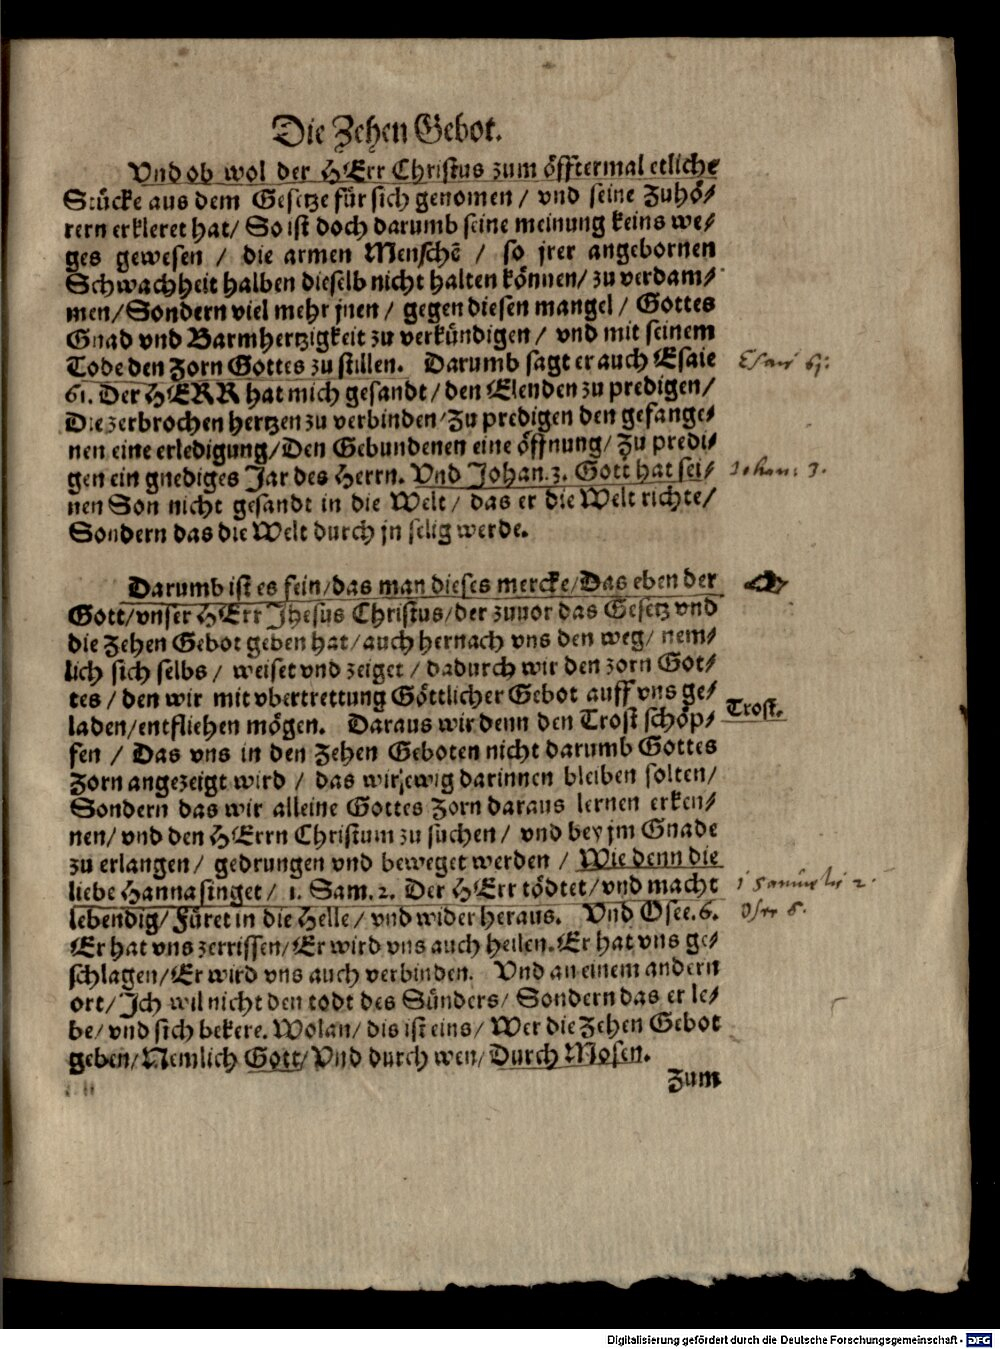 Die Zehen Gebot.
Vnd ob wol der HErr Christus zum öfftermal etliche
Stücke aus dem Gesetze für sich genomen / vnd seine Zuhö/
rern erkleret hat/ So ist doch darumb seine meinung keins we/
ges gewesen / die armen Menschẽ / so jrer angebornen
Schwachheit halben dieselb nicht halten können/ zu verdam/
men/ Sondern viel mehr jnen / gegen diesen mangel / Gottes
Gnad vnd Barmhertzigkeit zu verkündigen / vnd mit seinem
Tode den Zorn Gottes zu stillen. Darumb sagt er auch Esaie
Esaiæ 61.
61. Der HERR hat mich gesandt/ den Elenden zu predigen/
Die zerbrochen hertzen zu verbinden/ Zu predigen den gefange/
nen eine erledigung/ Den Gebundenen eine öffnung/ Zu predi/
gen ein gnediges Jar des Herrn. Vnd Johan. 3. Gott hat sei/
Johan: 3.
nen Son nicht gesandt in die Welt / das er die Welt richte/
Sondern das die Welt durch jn selig werde.
Darumb ist es fein/ das man dieses mercke/ Das eben der
Gott/ vnser HErr Jhesus Christus/ der zuuor das Gesetz vnd
die Zehen Gebot geben hat/ auch hernach vns den weg/ nem/
lich sich selbs / weiset vnd zeiget / dadurch wir den zorn Got/
tes / den wir mit vbertrettung Göttlicher Gebot auff vns ge/
laden/ entfliehen mögen. Daraus wir denn den Trost schöp/
Trost.
fen / Das vns in den Zehen Geboten nicht darumb Gottes
Zorn angezeigt wird / das wir ewig darinnen bleiben solten/
Sondern das wir alleine Gottes Zorn daraus lernen erken/
nen/ vnd den HErrn Christum zu suchen / vnd bey jm Gnade
zu erlangen / gedrungen vnd beweget werden / Wie denn die
liebe Hanna singet/ 1. Sam. 2. Der HErr tödtet/ vnd macht
1 Samuelis 2.
lebendig/ Füret in die Helle / vnd wider heraus. Vnd Osee. 6.
Osee 6.
Er hat vns zerrissen/ Er wird vns auch heilen. Er hat vns ge/
schlagen/ Er wird vns auch verbinden. Vnd an einem andern
ort/ Ich wil nicht den todt des Sünders/ Sondern das er le/
be/ vnd sich bekere. Wolan/ dis ist eins/ Wer die Zehen Gebot
geben/ Nemlich Gott/ Vnd durch wen/ Durch Mosen.
Zum
Digitalisierung gefördert durch die Deutsche Forschungsgemeinschaft - DFG